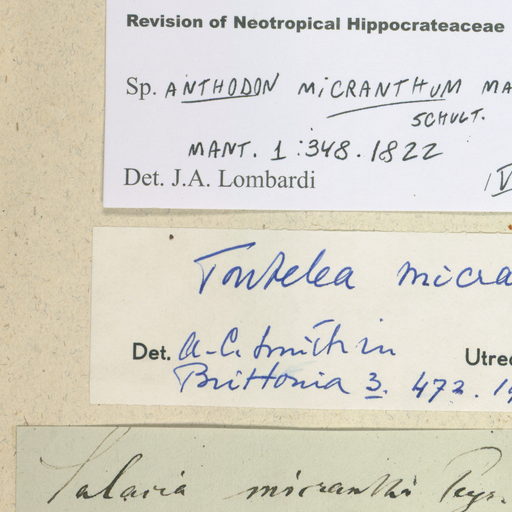 Revision of Neotropical Hippocrateaceae
Sp. ANTHODON MICRANTHUM MA
SCHULT.
MANT. 1:348.1822
Det. J.A. Lombardi
Tontelea micra
Det. A.C. Smith in
Utrec
Brittonia 3. 472. 19
Salacia micrantha Peyr.